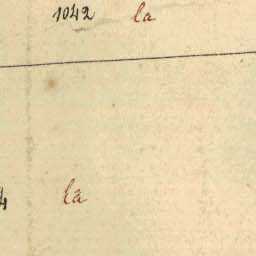 1042 la
la